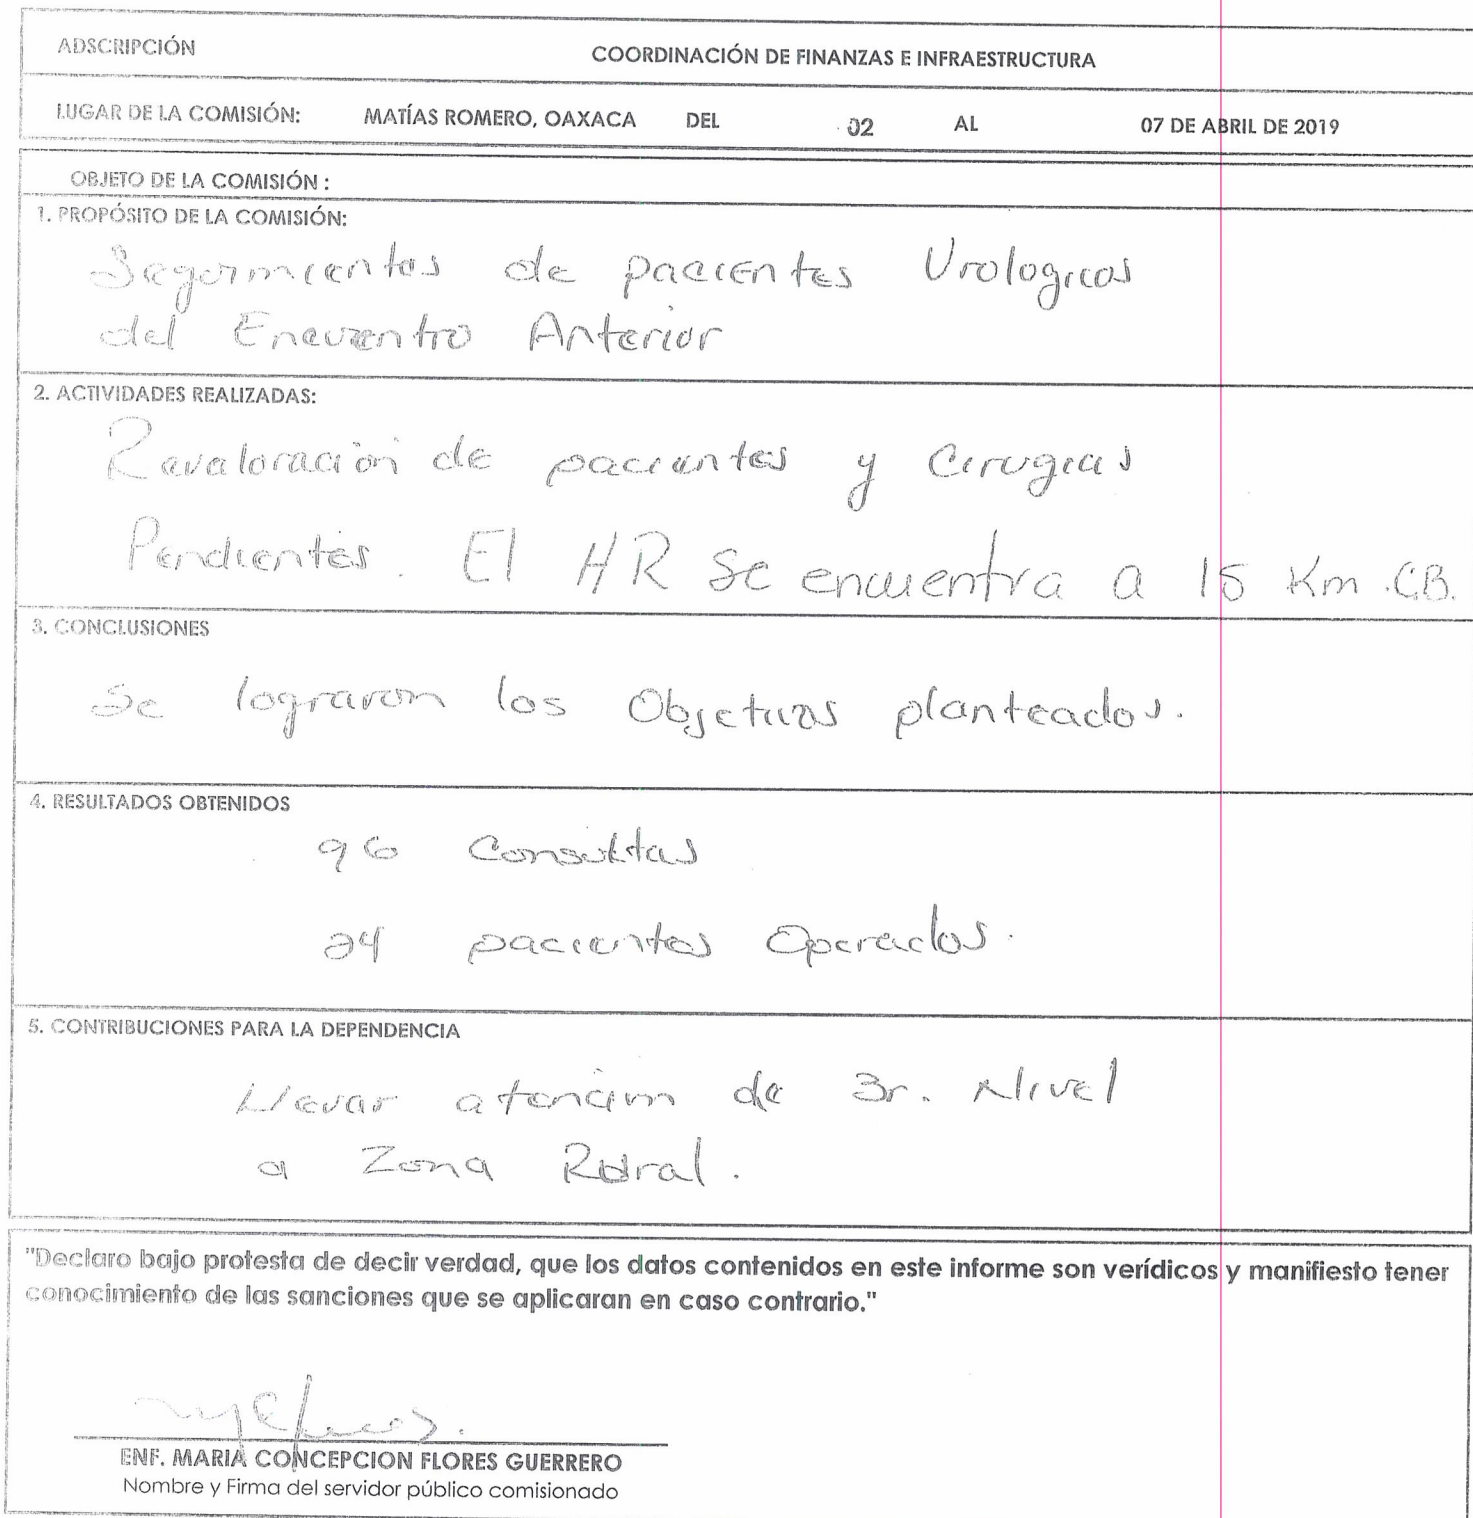 ADSCRIPCIÓN COORDINACIÓN DE FINANZAS E INFRAESTRUCTURA
LUGAR DE LA COMISIÓN: MATÍAS ROMERO, OAXACA DEL 02 AL 07 DE ABRIL DE 2019
OBJETO DE LA COMISIÓN :
1. PROPÓSITO DE LA COMISIÓN:
Seguimientos de pacientes Urologicos
del Encuentro Anterior
2. ACTIVIDADES REALIZADAS:
Revaloración de pacientes y Cirugias
Pendientes. El HR Se encuentra a 15 Km .CB.
3. CONCLUSIONES
Se lograron los Objetivos planteados.
4. RESULTADOS OBTENIDOS
96 Consultas
24 pacientes Operados.
5. CONTRIBUCIONES PARA LA DEPENDENCIA
Llevar atención de 3r. Nivel
a Zona Rural.
"Declaro bajo protesta de decir verdad, que los datos contenidos en este informe son verídicos y manifiesto tener
conocimiento de las sanciones que se aplicaran en caso contrario."
ENF. MARIA CONCEPCION FLORES GUERRERO
Nombre y Firma del servidor público comisionado